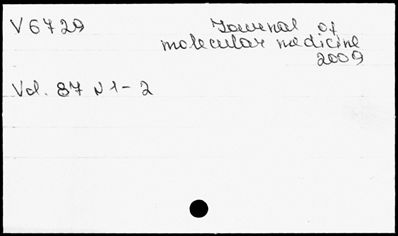 V 6729
Journal of
molecular medicine
2009
Vol. 87 N 1-2